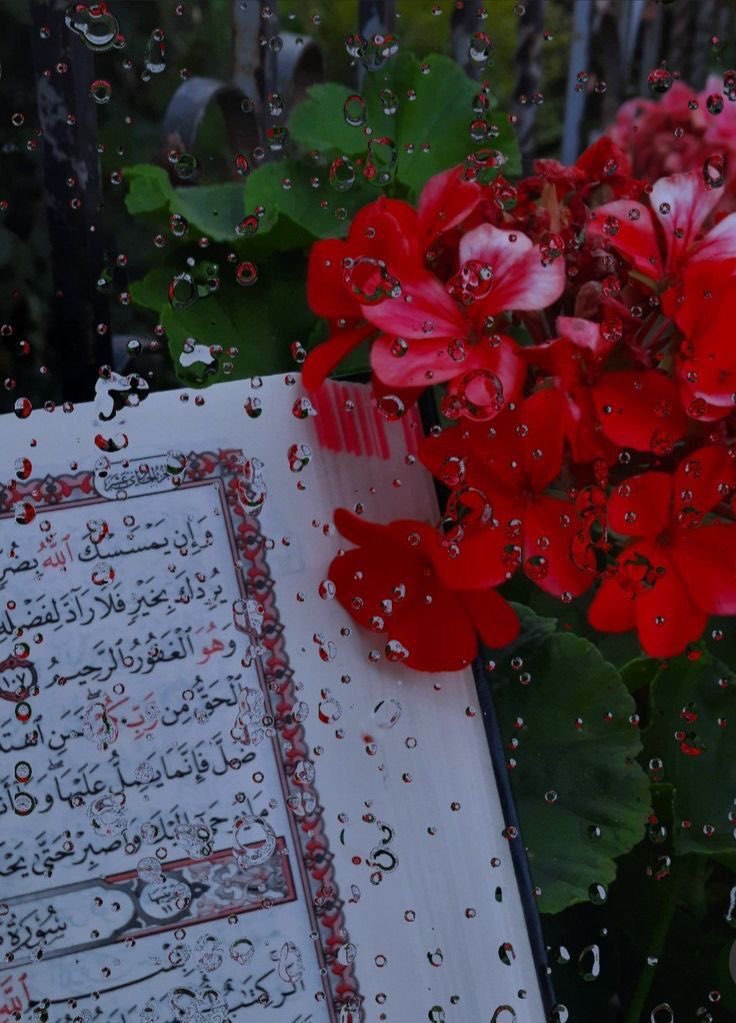 وَإِن يَمْسَسْكَ ٱللَّهُ بِضُرٍّ
يُرِدْكَ بِخَيْرٍ فَلَا رَآدَّ لِفَضْلِهِ
وَهُوَ ٱلْغَفُورُ ٱلرَّحِيمُ ١٠٧
ٱلْحَقُّ مِن رَّبِّكُمْ فَمَنِ ٱهْتَدَ
ضَلَّ فَإِنَّمَا يَضِلُّ عَلَيْهَا وَمَآ أَنَا
إِلَيْكَ وَٱصْبِرْ حَتَّىٰ يَحْ
سُورَةُ
ٱللَّهِ
الٓر كِتَـٰبٌ